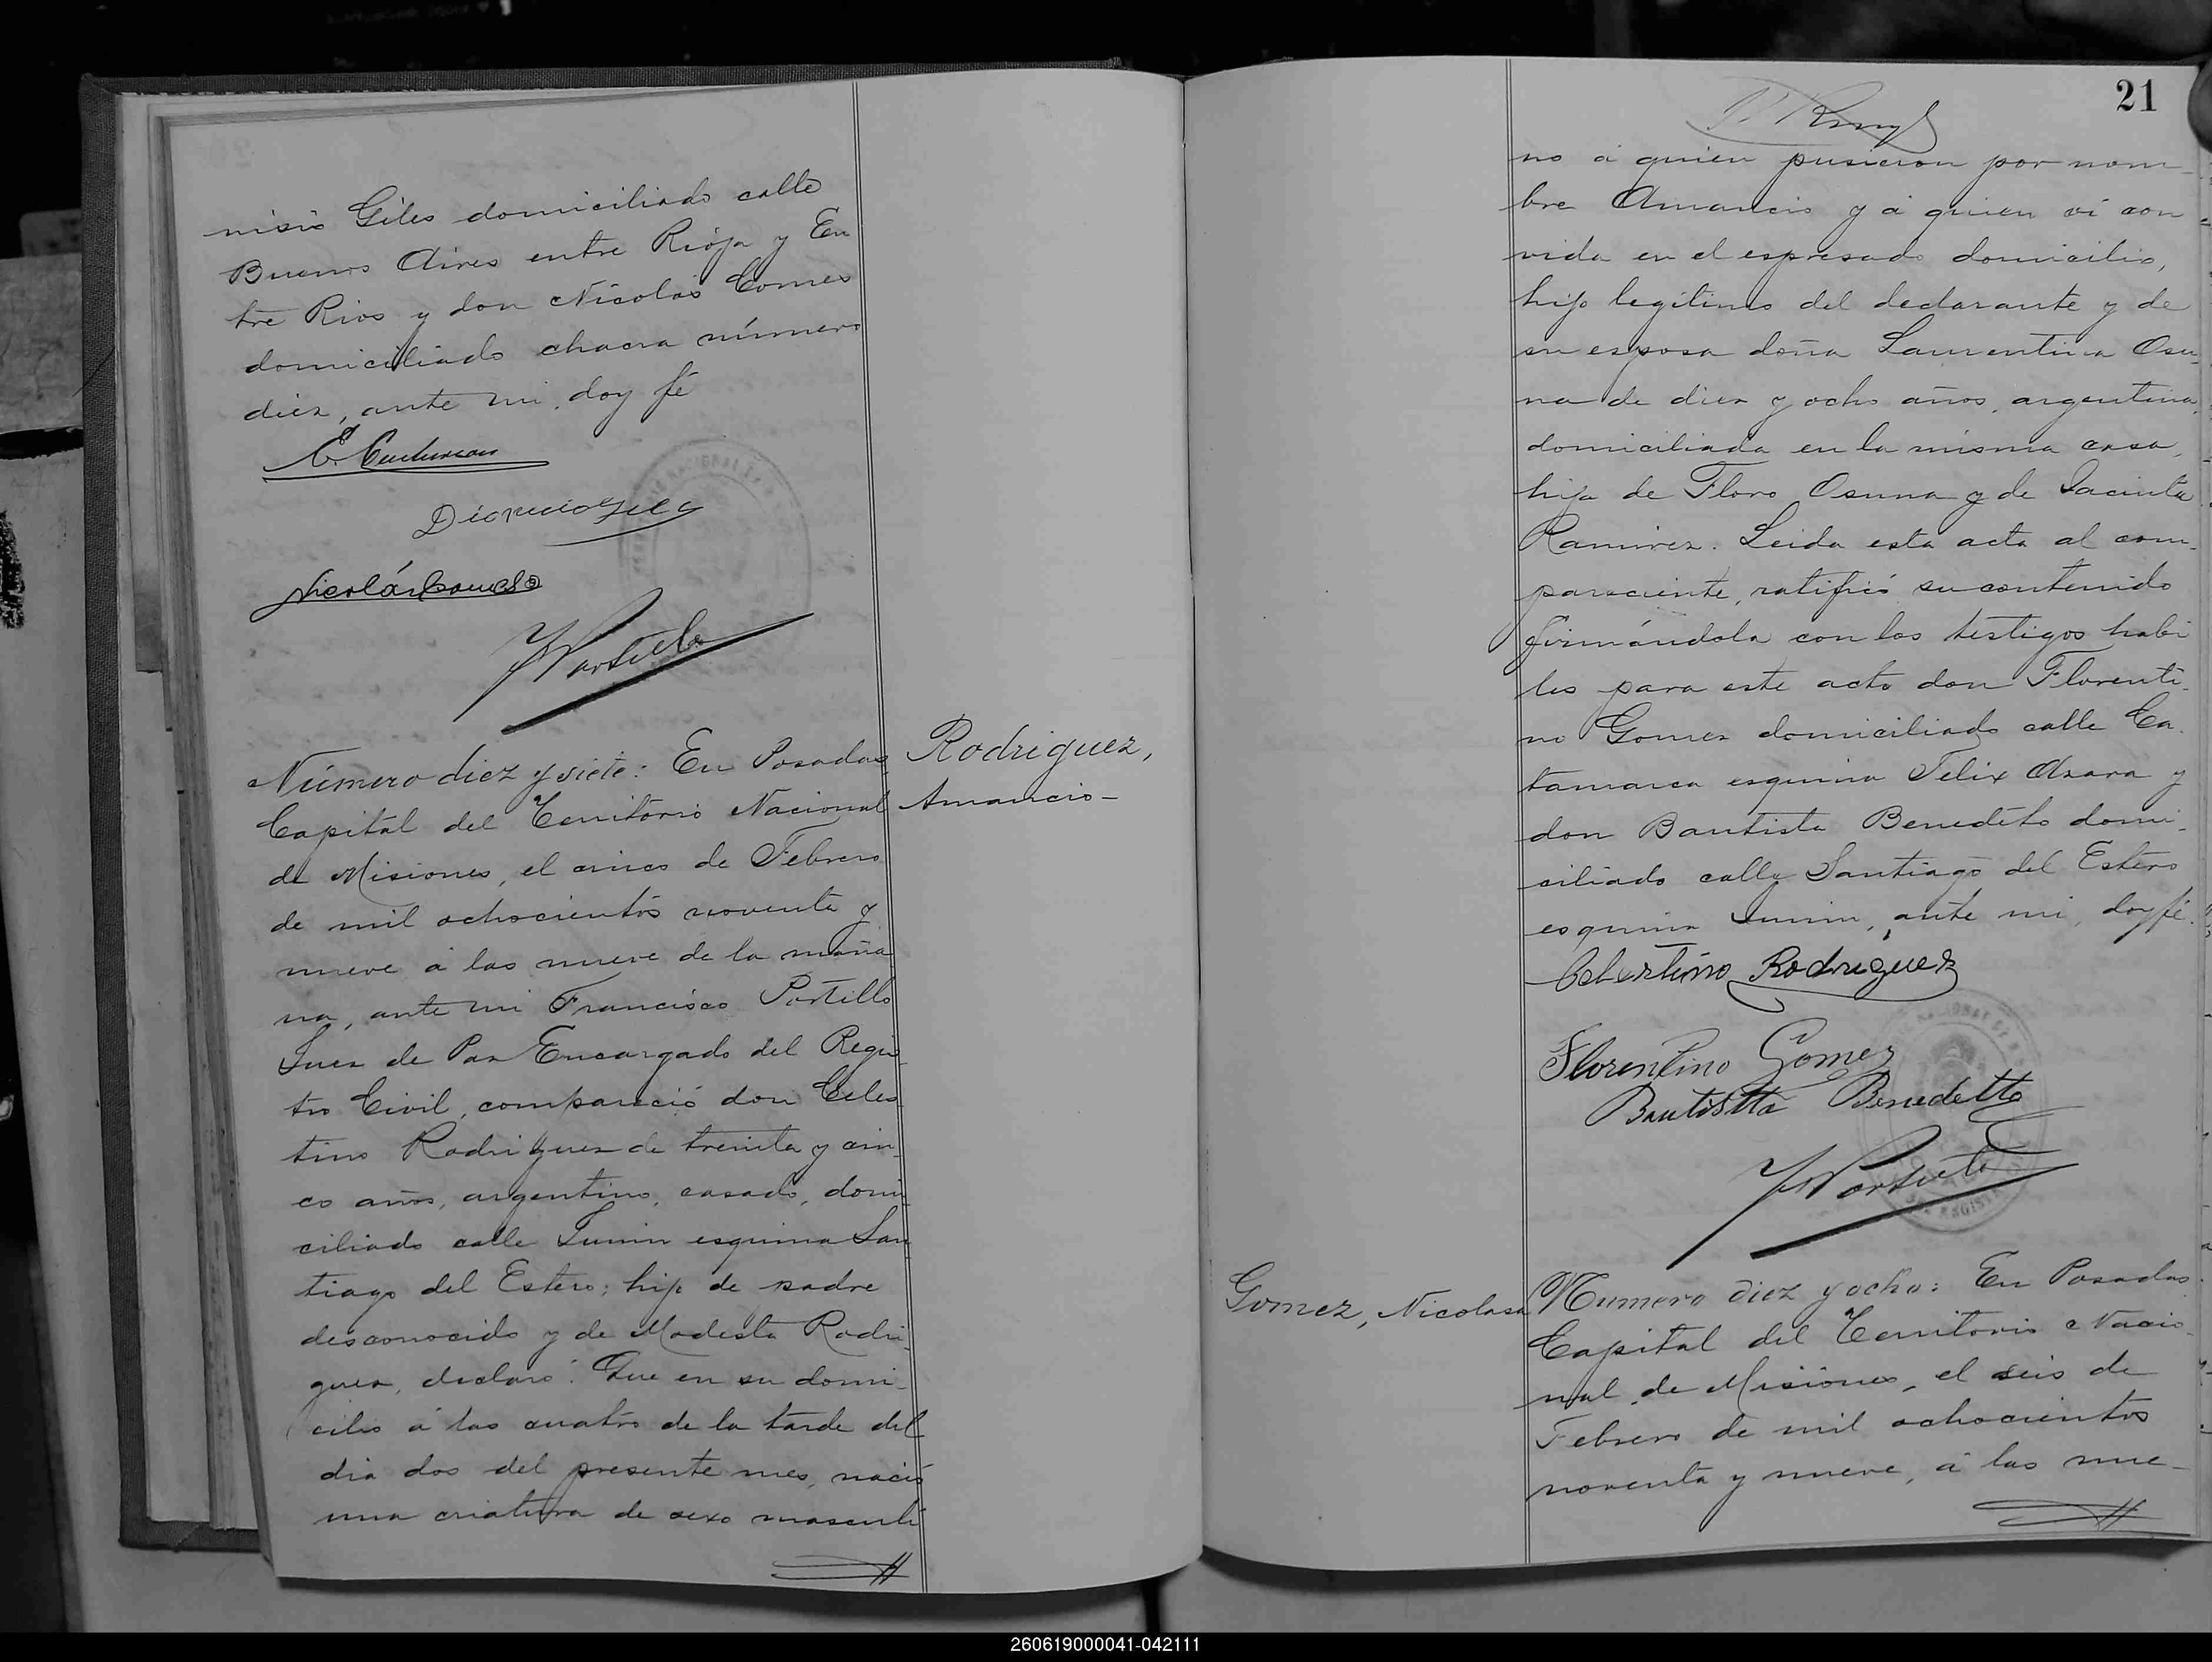 nisio Giles domiciliado calle
Buenos Aires entre Rioja y En
tre Rios y don Nicolás Comes
domiciliado chacra número
diez, ante mi, doy fé
Nicolás
FPortillo
Número diez y siete: En Posadas
Capital del Territorio Nacional
de Misiones, el cinco de Febrero
de mil ochocientos noventa y
nueve á las nueve de la maña
na, ante mi Francisco Portillo
Juez de Paz Encargado del Regis
tro Civil, compareció don Celes
tino Rodriguez de treinta y cin-
co años, argentino, casado, domi
ciliado calle Junin esquina San
tiago del Estero; hijo de padre
desconocido y de Modesta Rodri
guez, declaró: Que en su domi-
cilio á las cuatro de la tarde del
dia dos del presente mes, nació
una criatura de sexo masculi
Rodriguez,
Amancio-
21
no á quien pusieron por nom-
bre Amancio y á quien vi con
vida en el espresado domicilio,
hijo legítimo del declarante y de
su esposa doña Laurentina Osu-
na de diez y ocho años, argentina,
domiciliada en la misma casa,
hija de Floro Osuna y de Jacinta
Ramirez. Leida esta acta al com-
pareciente, ratificó su contenido
firmándola con los testigos habi
les para este acto don Florenti-
no Gomez domiciliado calle Ca-
tamarca esquina Felix Azara y
don Bautista Benedeto domi-
ciliado calle Santiago del Estero
esquina Junin, ante mi, doy fé.
Celestino Rodriguez
Florentino Gomez
Bautistta Benedetto
FPortillo
Gomez, Nicolasa
Numero diez y ocho: En Posadas
Capital del Territorio Nacio-
nal de Misiones, el seis de
Febrero de mil ochocientos
noventa y nueve, á las nue-
260619000041-042111